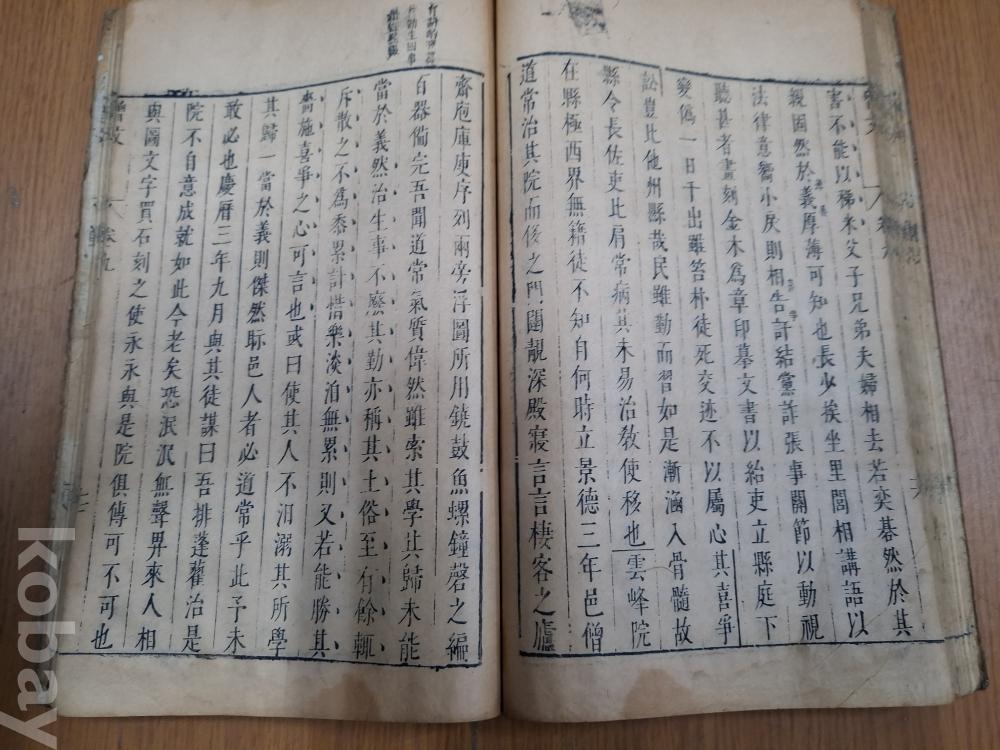 害不能以稊米父子兄弟夫婦相去若奕碁然於其
親固然於義厚薄可知也長少挨坐里閭相講語以
法律意嚮小戾則相告訐結黨詐張事關節以動視
聽甚者畫刻金木爲章印摹文書以紿吏立縣庭下
變僞一日千出雖笞朴徒死交迹不以屬心其喜爭
訟豈比他州縣哉民雖勤而習如是漸涵入骨髓故
縣令長佐吏比肩常病其未易治教使移也雲峰院
在縣極西界無籍徒不知自何時立景德三年邑僧
道常治其院而侈之門闥靚深殿寢言言棲客之廬
齋庖庫庾序列兩旁浮圖所用鐃鼓魚螺鐘磬之編
百器備完吾聞道常氣質偉然雖索其學其歸未能
當於義然治生事不廢其勤亦稱其土俗至有餘輒
斥散之不爲黍累計惜樂淡泊無累則又若能勝其
嗇施喜爭之心可言也或曰使其人不汨溺其所學
其歸一當於義則傑然眎邑人者必道常乎此予未
敢必也慶曆三年九月與其徒謀曰吾排蓬藋治是
院不自意成就如此今老矣恐泯泯無聲畀來人相
與圖文字買石刻之使永永與是院俱傳可不可也
卷九
kobay